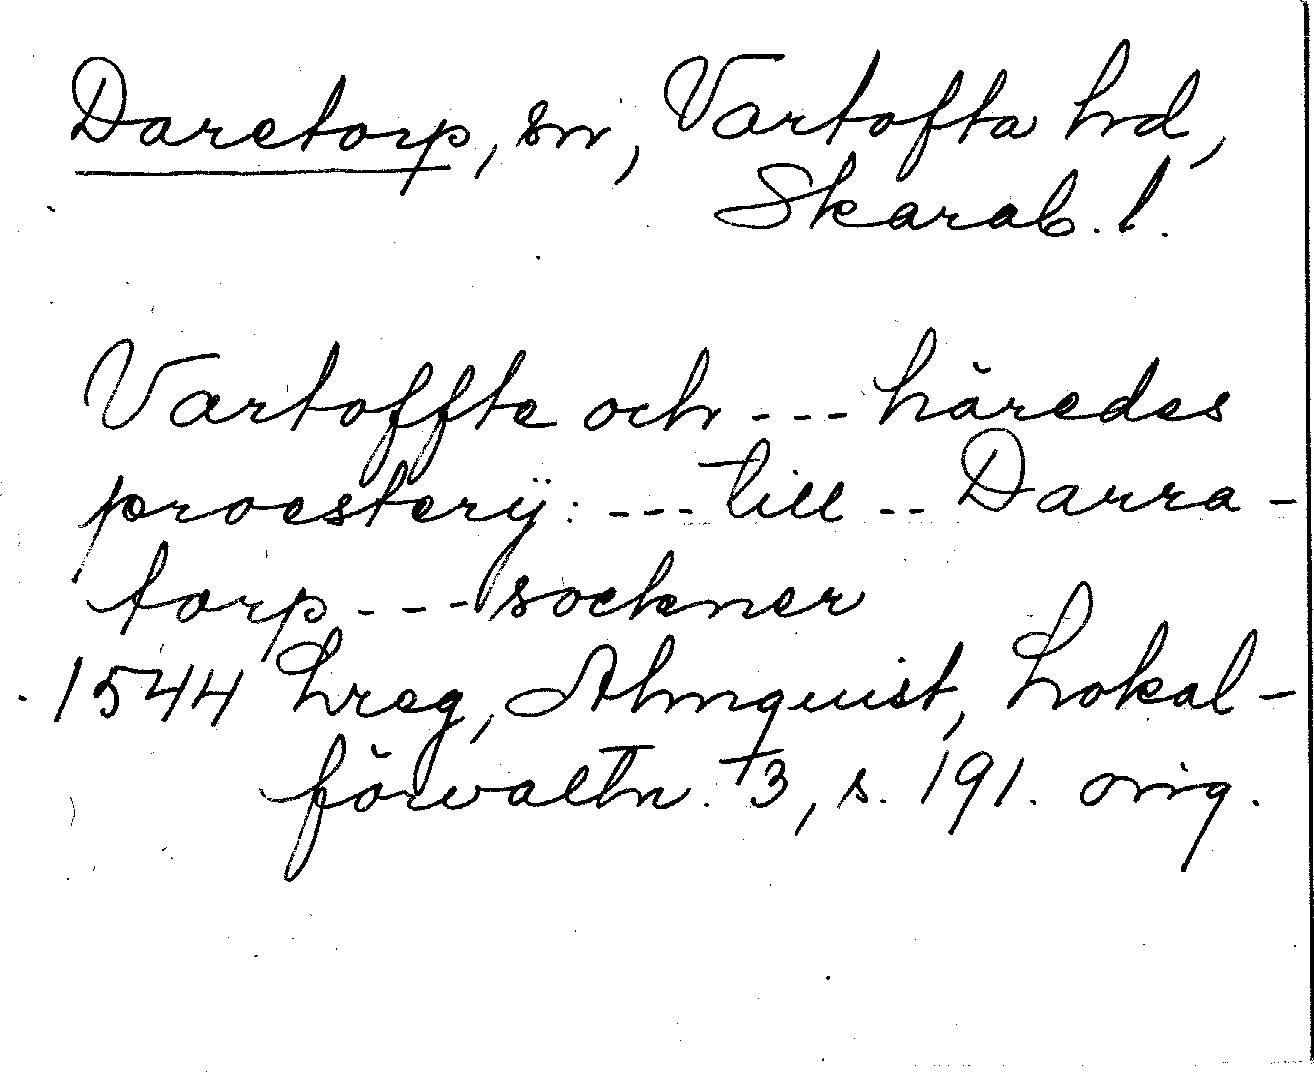 Daretorp, sn, Vartofta hd,
Skarab. l.
Vartoffte och --- häredes
proesterij: --- till -- Darra-
torp --- sockner
1544 Lreg, Almquist, Lokal-
förvaltn. 3, s. 191. orig.